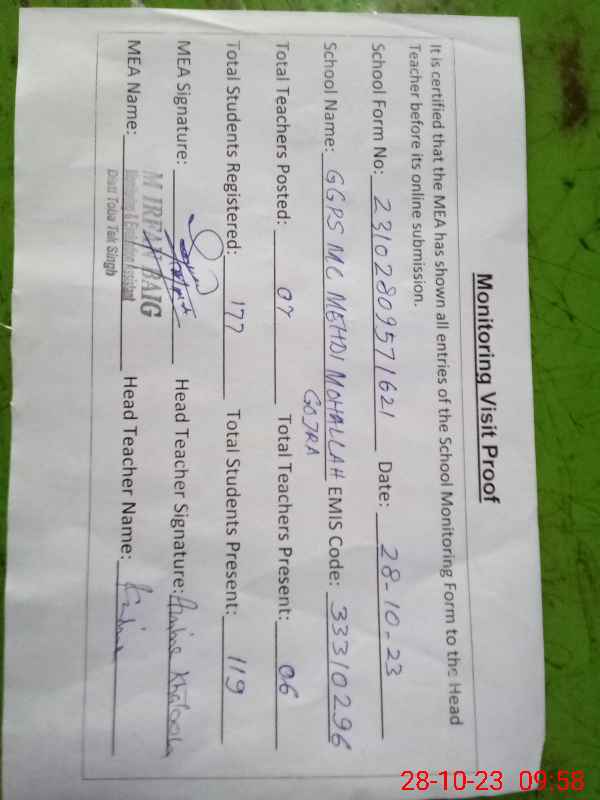 Monitoring Visit Proof
It is certified that the MEA has shown all entries of the School Monitoring Form to the Head
Teacher before its online submission.
School Form No: 23102809571621 Date: 28-10-23
School Name: GGPS MC MEHDI MOHALLAH EMIS Code: 33310296
GOJRA
Total Teachers Posted: 07 Total Teachers Present: 06
Total Students Registered: 177 Total Students Present: 119
MEA Signature: Head Teacher Signature:
M IRFAN BAIG
MEA Name: Monitoring & Evaluation Assistant Head Teacher Name:
Distt Toba Tek Singh
28-10-23 09:58